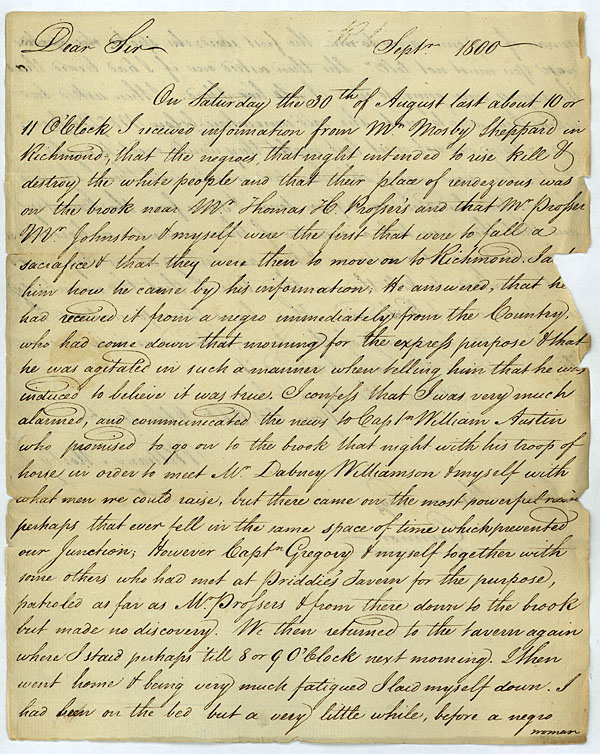 Dear Sir Septr 1800
On Saturday the 30th of August last about 10 or
11 O'Clock I received information from Mr Mosby Sheppard in
Richmond, that the negroes, that night intended to rise kill &
destroy the white people and that their place of rendezvous was
on the brook near Mr Thomas H. Prossers and that Mr Prosser
Mr Johnston & myself were the first that were to fall a
sacrafice & that they were then to move on to Richmond. I
him how he came by his information; He answered, that he
had received it from a negro immediately from the Country,
who had come down that morning for the express purpose & that
he was agitated in such a manner when telling him that he was
induced to believe it was true. I confess that I was very much
alarmed, and communicated the news to Captn William Austin
who promised to go on to the brook that night with his troop of
horse in order to meet Mr Dabney Williamson & myself with
what men we could raise, but there came on the most powerful rain
perhaps that ever fell in the same space of time which prevented
our Junction; However Captn Gregory & myself together with
some others who had met at Priddie's Tavern for the purpose,
patroled as far as Mr Prossers & from there down to the brook
but made no discovery. We then returned to the tavern again
where I staid perhaps till 8 or 9 O'Clock next morning. I then
went home & being very much fatigued I laid myself down. I
had been on the bed but a very little while, before a negro
woman